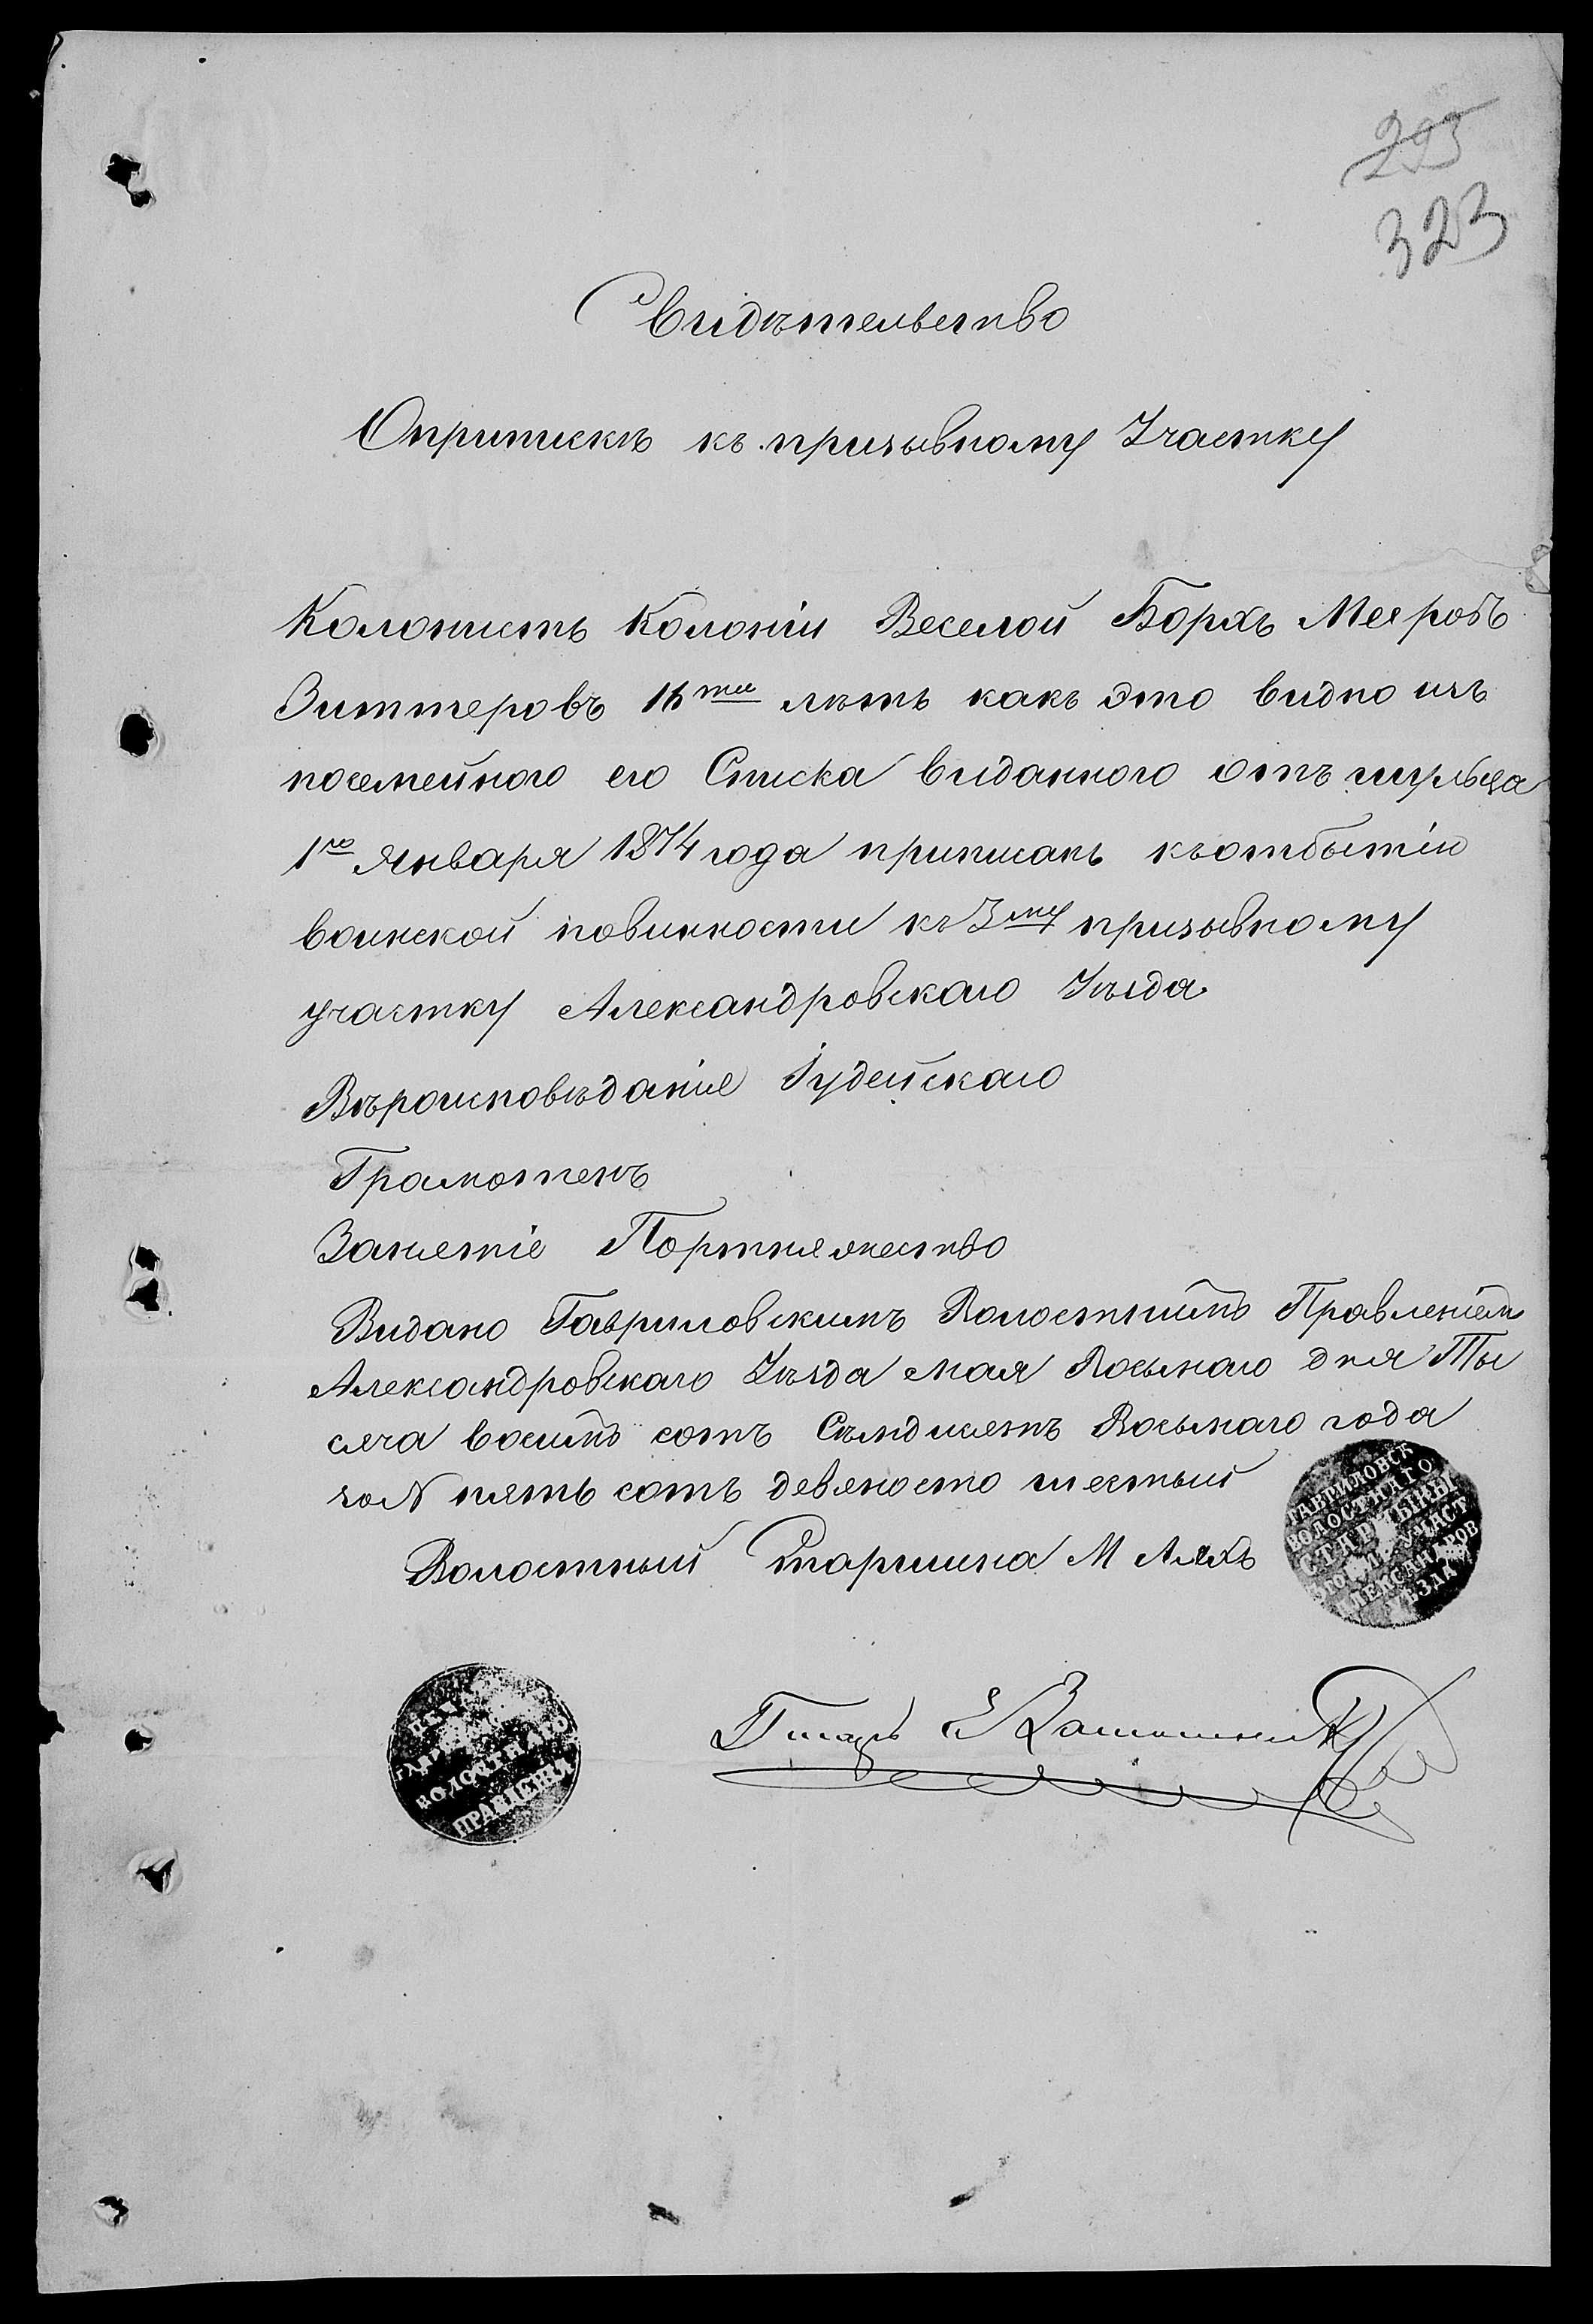 293
323
Свидѣтельство
Оприпискѣ къ призывному Участку
Колонистъ Колоніи Веселой Борхъ Мееровъ
Зиттеровъ 16ти лѣтъ какъ это видно изъ
посемейного его Списка виданного отъ шульца
1го Января 1874 года приписанъ къ отбытію
воинской повинности къ 3му призывному
участку Александровскаго Уѣзда
Вѣроисповѣданіе Іудейскаго
Грамотенъ
Занетіе Портняжество
Видано Гавриловскимъ Волостнимъ Правленіемъ
Александровскаго Уѣзда мая Восьмаго дня Ты
сяча восимъ сотъ Сѣмдисятъ Восьмаго года
за N пять сотъ девеносто шестый
Волостный Старшина М Ляхъ
ГАВРИЛОВСК
ВОЛОСТНАГО
СТАРШИНЫ
УЧАСТ
АЛЕКСАНДРОВ
УѢЗДА
Писарь
ВОЛОСТНАГО
ПРАВЛЕНІЯ